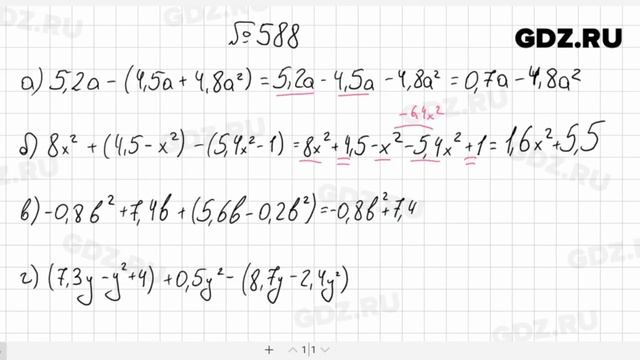 №588
GDZ.RU
а) 5,2a - (4,5a + 4,8a²) = 5,2a - 4,5a - 4,8a² = 0,7a - 4,8a²
-6,4x²
б) 8x² + (4,5 - x²) - (5,4x² - 1) = 8x² + 4,5 - x² - 5,4x² + 1 = 1,6x² + 5,5
в) -0,8b² + 7,4b + (5,6b - 0,2b²) = -0,8b² + 7,4
г) (7,3y - y² + 4) + 0,5y² - (8,7y - 2,4y²)
+ 1|1